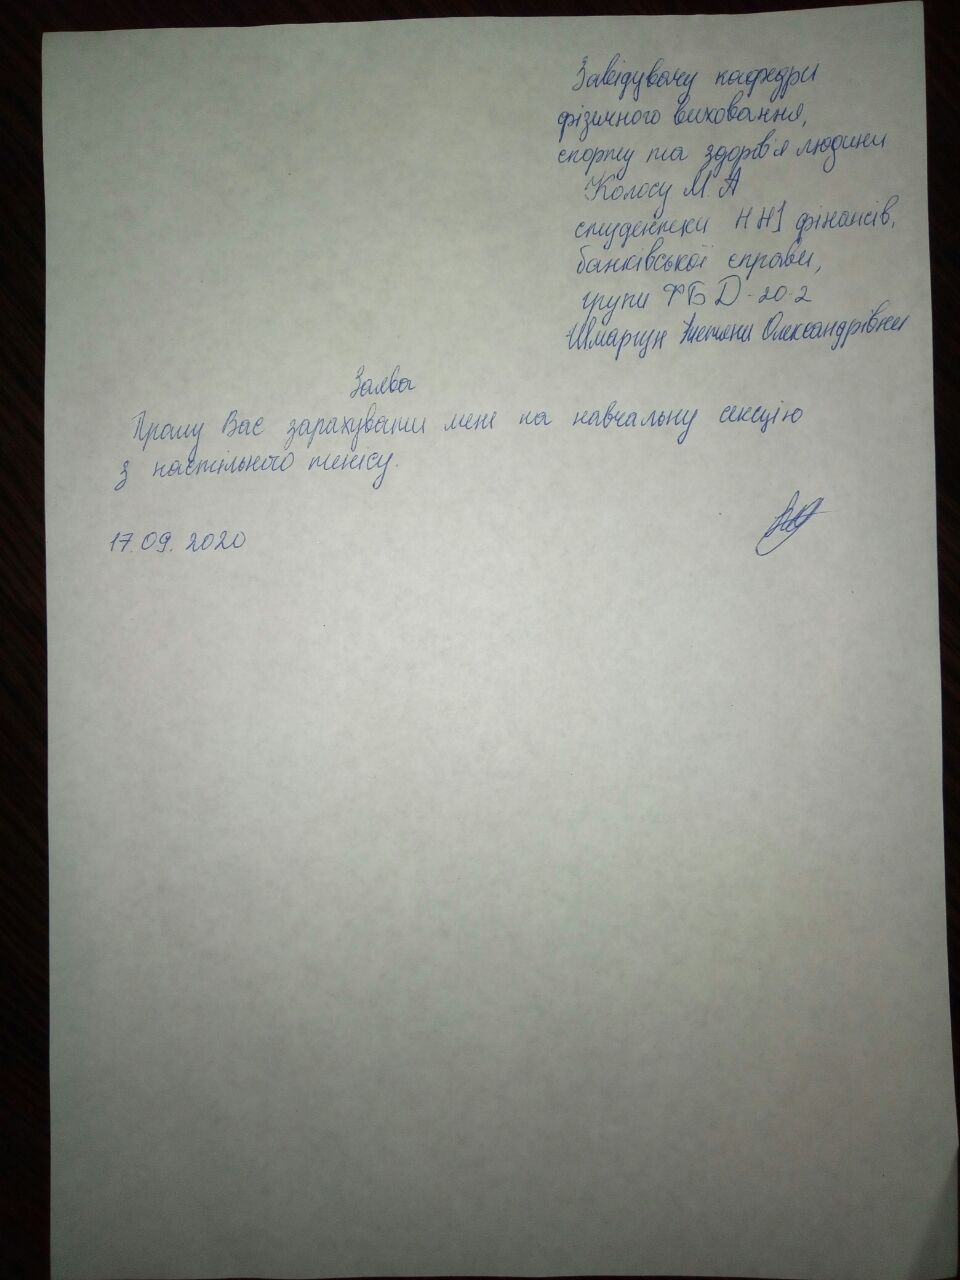 Завідувачу кафедри
фізичного виховання,
спорту та здоров'я людини
Колосу М.А
студентки ННІ фінансів,
банківської справи,
групи ФБД-20-2
Шмаргун Тетяни Олександрівни
Заява
Прошу Вас зарахувати мене на навчальну секцію
з настільного тенісу.
17.09.2020